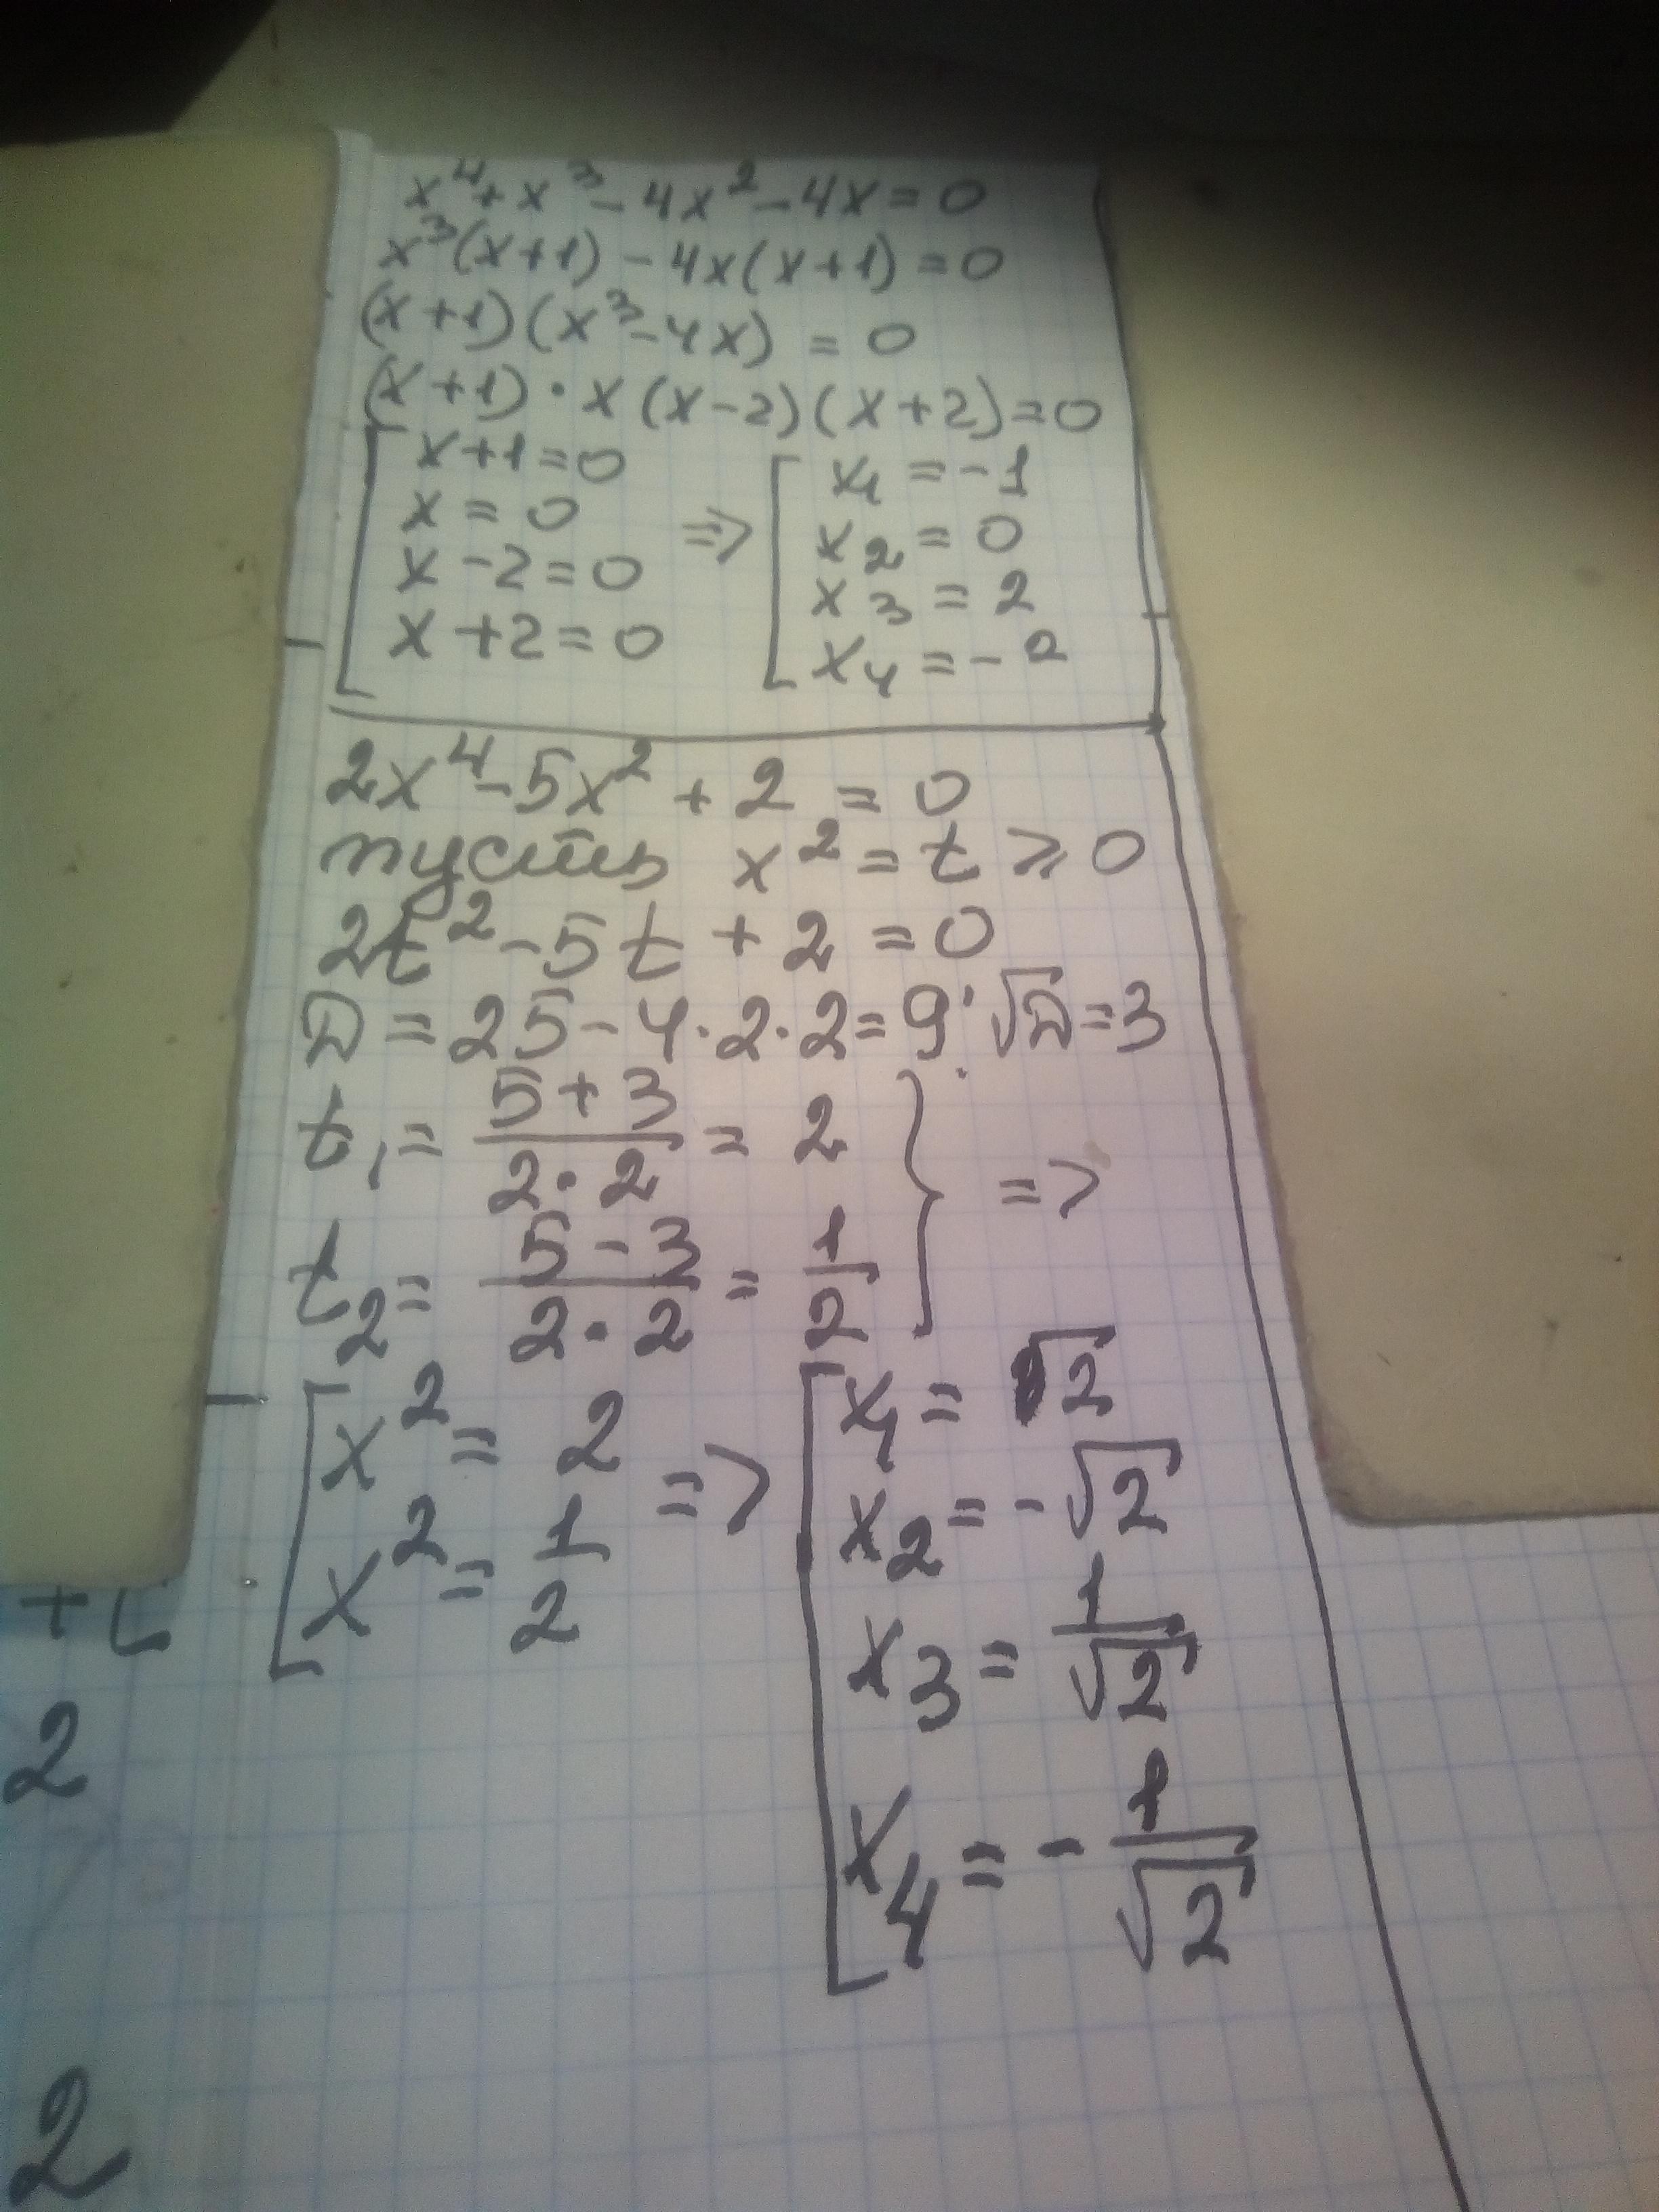 x⁴+x³-4x²-4x=0
x³(x+1)-4x(x+1)=0
(x+1)(x³-4x)=0
(x+1)·x(x-2)(x+2)=0
x+1=0
x=0
x-2=0
x+2=0
=>
x₁=-1
x₂=0
x₃=2
x₄=-2
2x⁴-5x²+2=0
пусть x²=t⩾0
2t²-5t+2=0
D=25-4·2·2=9; √D=3
t₁=(5+3)/(2·2)=2
t₂=(5-3)/(2·2)=1/2
=>
x²=2
x²=1/2
=>
x₁=√2
x₂=-√2
x₃=1/√2
x₄=-1/√2
2
2